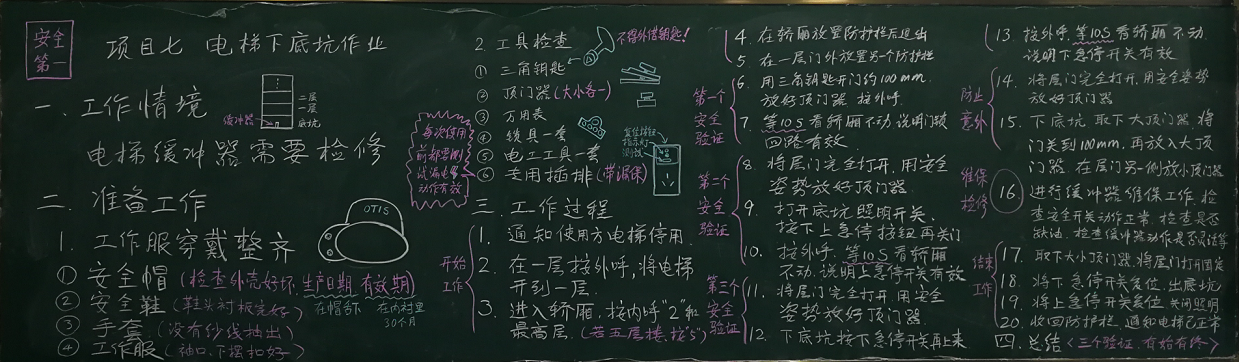 安全
第一
项目七 电梯下底坑作业
一. 工作情境
二层
一层
底坑
缓冲器
电梯缓冲器需要检修
二. 准备工作
1. 工作服穿戴整齐
OTIS
① 安全帽(检查外壳好坏,生产日期,有效期)
在帽下 在内衬里
30个月
② 安全鞋(鞋头衬板完好)
③ 手套(没有纱线抽出)
④ 工作服(袖口、下摆扣好)
2. 工具检查
不得外借钥匙!
① 三角钥匙
② 顶门器(大小各一)
③ 万用表
④ 锁具一套
⑤ 电工工具一套
⑥ 专用插排(带漏保)
每次使用
前都要测
试漏电器
动作有效
复位按钮
指示灯
测试
三. 工作过程
开始
工作
1. 通知使用方电梯停用.
2. 在一层按外呼,将电梯
开到一层.
3. 进入轿厢,按内呼“2”和
最高层.(若五层楼,按“5”)
4. 在轿厢放置防护栏后退出
5. 在一层门外放置另一个防护栏
第一个
安全
验证
6. 用三角钥匙开门约100mm.
放好顶门器 按外呼.
7. 等10S 看轿厢不动,说明门锁
回路有效.
第二个
安全
验证
8. 将层门完全打开,用安全
姿势放好顶门器.
9. 打开底坑照明开关.
按下上急停按钮再关门
10. 按外呼,等10S 看轿厢
不动,说明上急停开关有效
第三个
安全
验证
11. 将层门完全打开,用安全
姿势放好顶门器.
12. 下底坑按下急停开关再上来
13. 按外呼 等10S 看轿厢不动.
说明下急停开关有效.
防止
意外
14. 将层门完全打开,用安全姿势
放好顶门器
15. 下底坑,取下大顶门器,将
门关到100mm,再放入大顶
门器 在层门另一侧放小顶门器
维保
检修
16 进行缓冲器维保工作,检
查安全开关动作正常,检查是否
缺油,检查缓冲器动作是否灵活等
结束
工作
17. 取下大小顶门器,将层门打开固定
18. 将下急停开关复位,出底坑
19. 将上急停开关复位 关闭照明
20. 收回防护栏,通知电梯已正常
四. 总结(三个验证,有始有终)